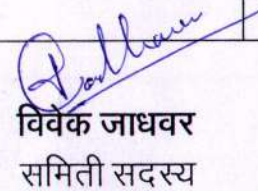 विवेक जाधवर
समिती सदस्य